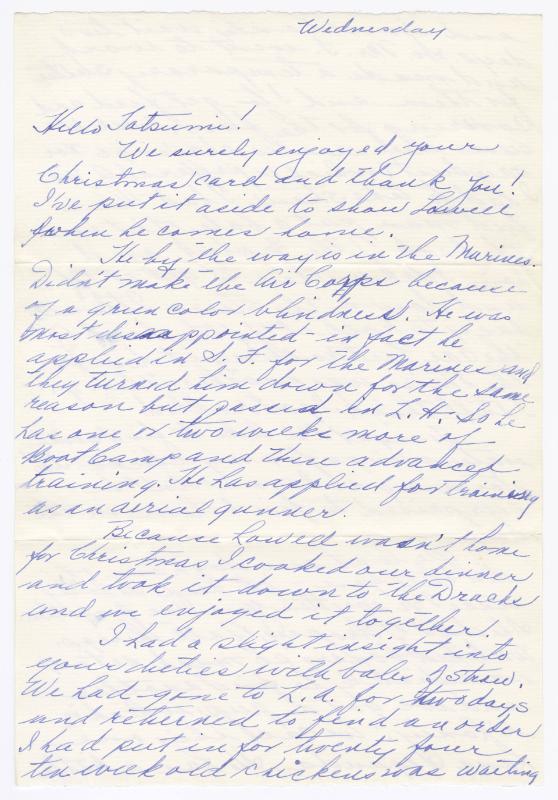 Wednesday
Hello Tatsumi!
We surely enjoyed your
Christmas card and thank you!
I've put it aside to show Lowell
when he comes home.
He by the way is in the Marines.
Didn't make the Air Corps because
of a green color blindness. He was
most disappointed - in fact he
applied in S. F. for the Marines and
they turned him down for the same
reason but passed in L. A. So he
has one or two weeks more of
Boot Camp and then advanced
training. He has applied for training
as an aerial gunner.
Because Lowell wasn't home
for Christmas I cooked our dinner
and took it down to the Drachs
and we enjoyed it together.
I had a slight insight into
your duties with bales of straw.
We had gone to L.A. for two days
and returned to find an order
I had put in for twenty four
ten week old chickens was waiting